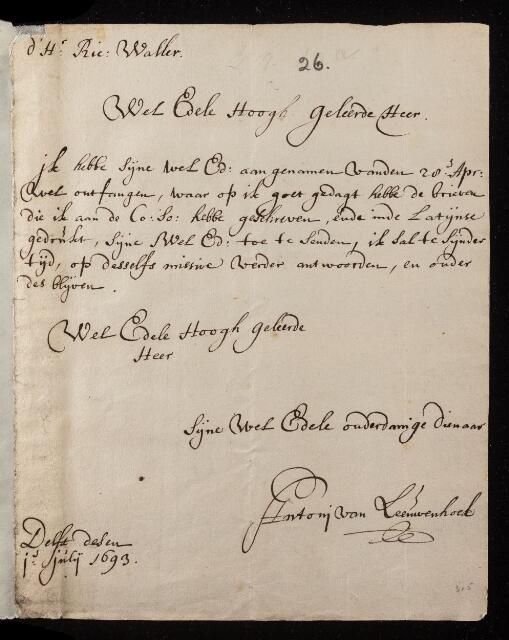 d'Hr. Ric: Waller.
26.
Wel Edele Hoogh geleerde Heer.
ik hebbe sijne wel Ed: aangenamen vanden 28s. Apr:
wel ontfangen, waar op ik goet gedagt hebbe de brieven
die ik aan de Co: So: hebbe geschreven, ende inde Latijnse
gedrukt, sijne Wel Ed: toe te senden, ik sal te sijnder
tijd, op desselfs missive verder antwoorden, en onder
des blijven.
Wel Edele Hoogh geleerde
Heer
sijne Wel Edele onderdanige dienaar
Antonj van Leeuwenhoek
Delft desen
1e. julij 1693.